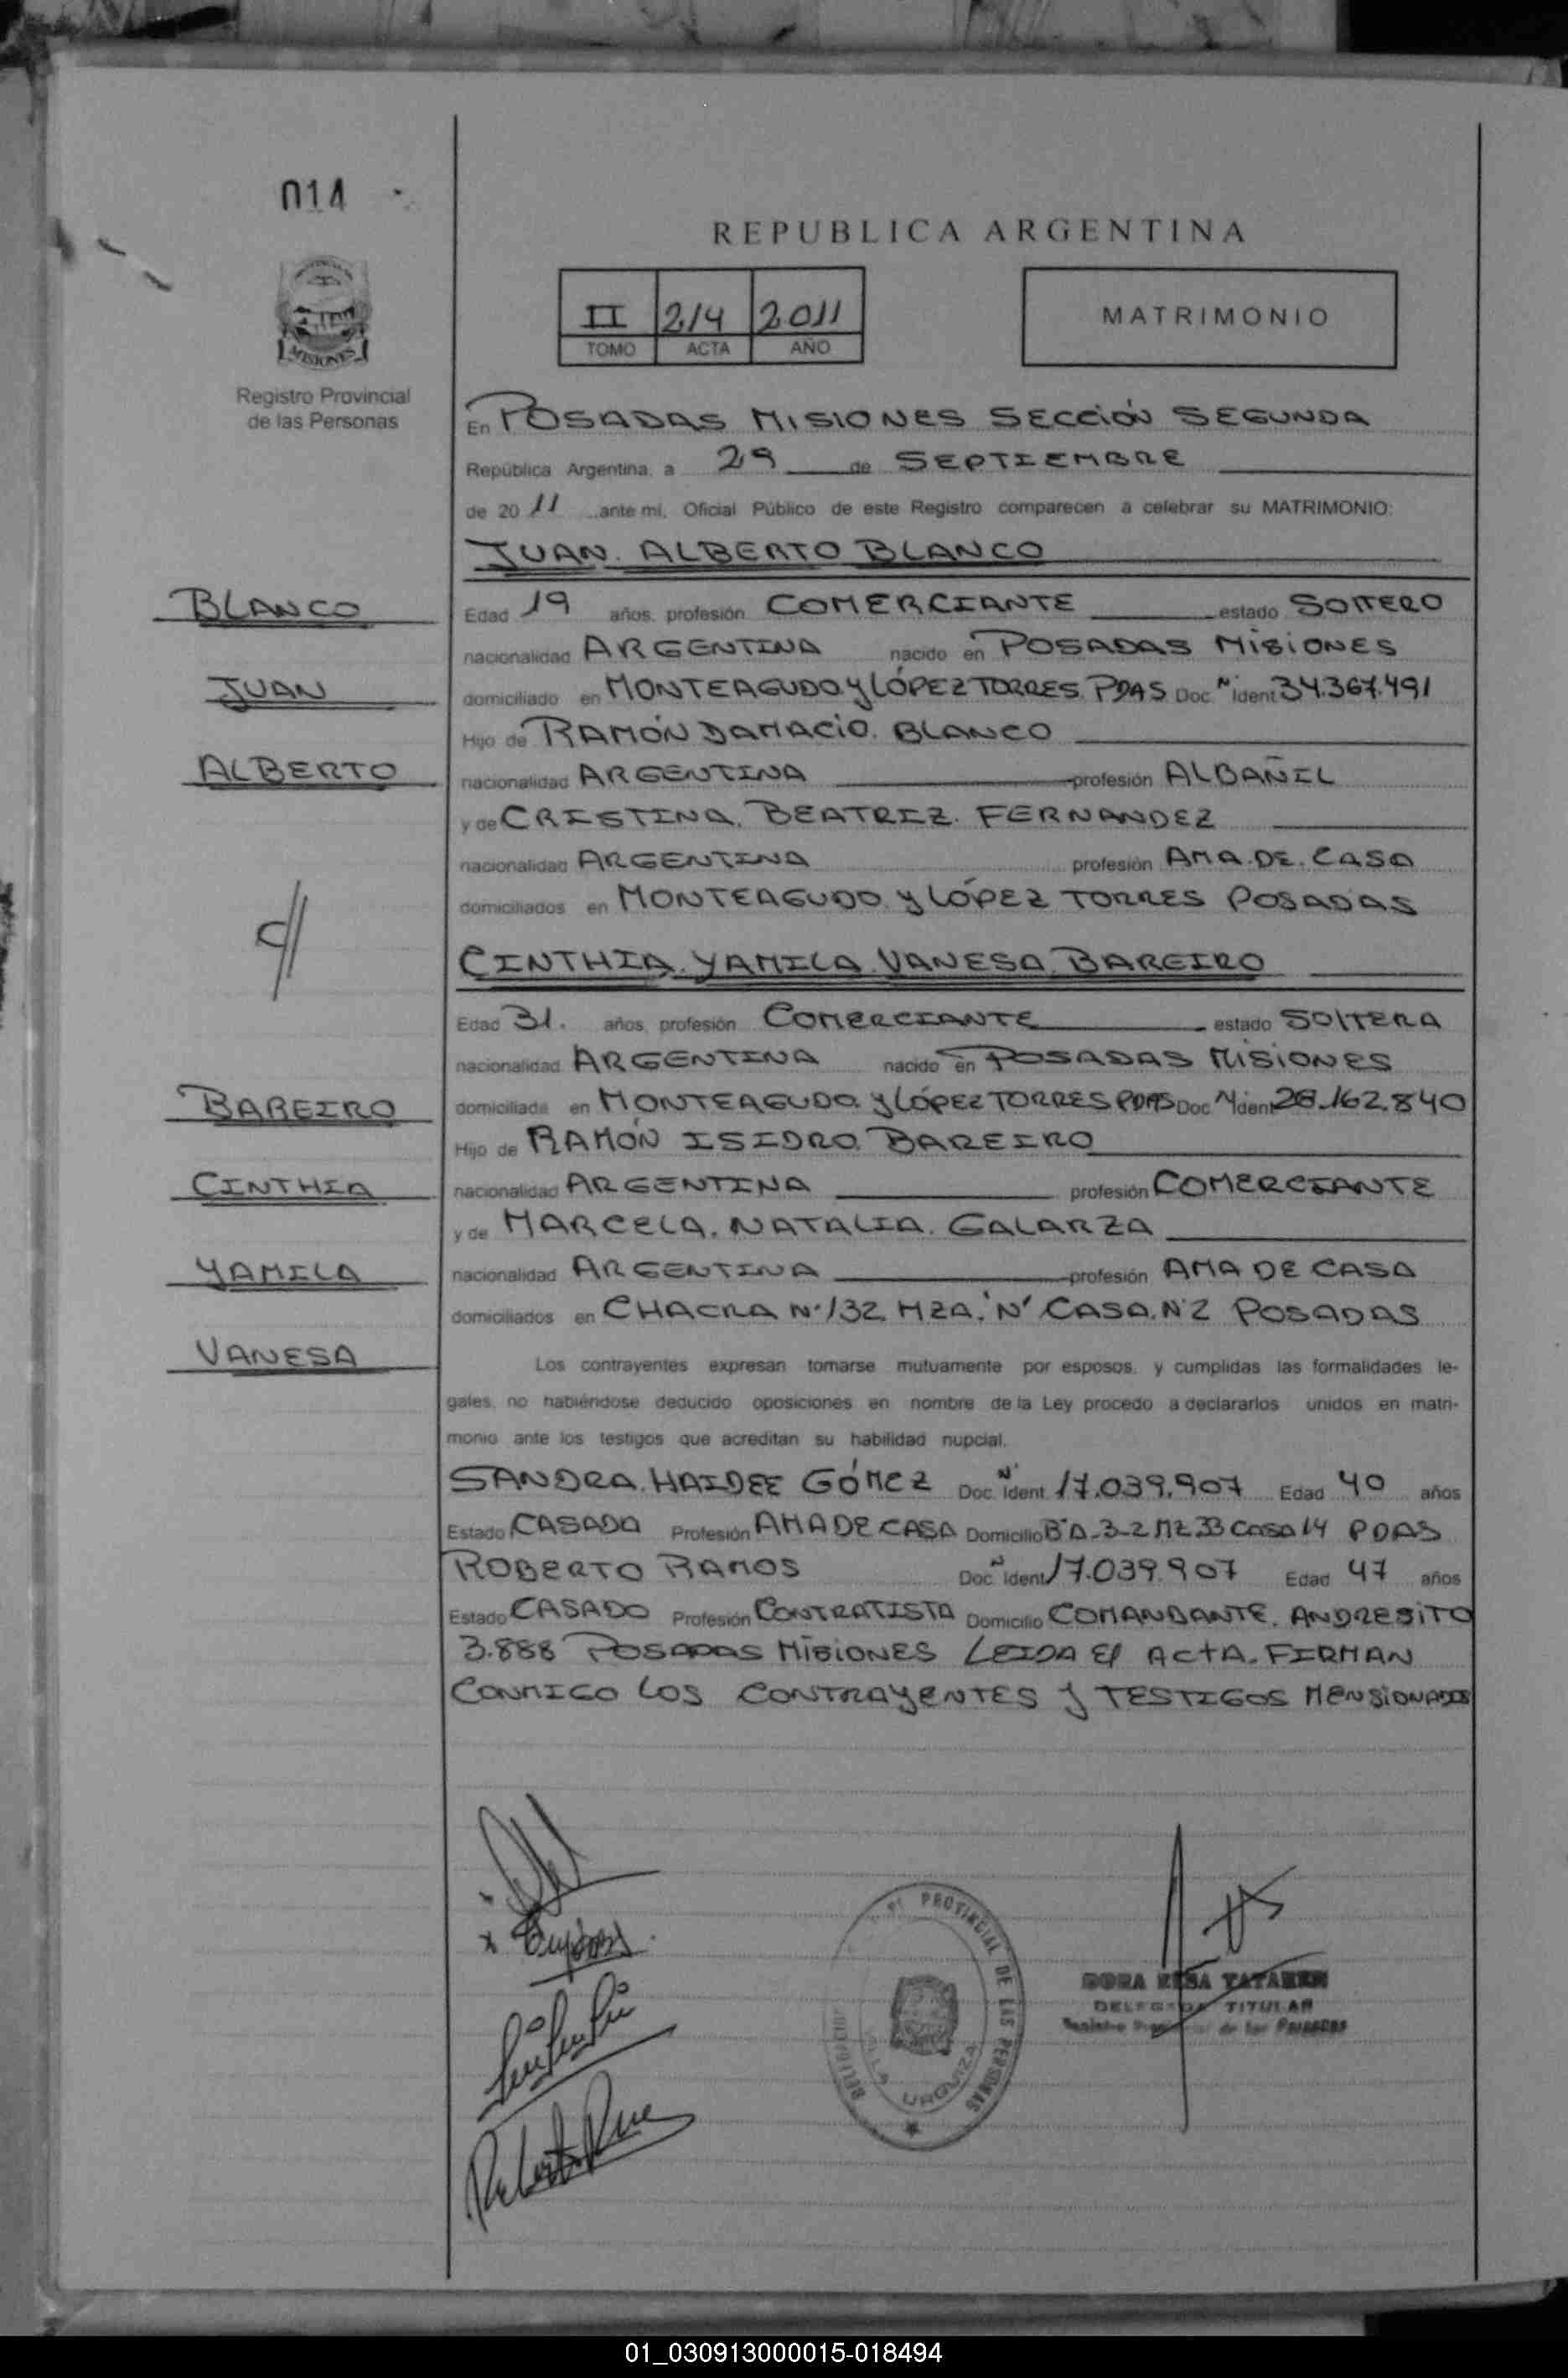 014
REPUBLICA ARGENTINA
II 214 2011
TOMO ACTA AÑO
MATRIMONIO
MISIONES
Registro Provincial
de las Personas
En POSADAS MISIONES SECCIÓN SEGUNDA
República Argentina, a 29 de SEPTIEMBRE
de 2011 ante mí, Oficial Público de este Registro comparecen a celebrar su MATRIMONIO:
JUAN. ALBERTO BLANCO
BLANCO
Edad 19 años, profesión COMERCIANTE estado SOLTERO
nacionalidad ARGENTINA nacido en POSADAS MISIONES
JUAN
domiciliado en MONTEAGUDO Y LÓPEZ TORRES. PDAS Doc. N° Ident 34.367.491
Hijo de RAMÓN DAMACIO. BLANCO
ALBERTO
nacionalidad ARGENTINA profesión ALBAÑIL
y de CRISTINA. BEATRIZ. FERNANDEZ
nacionalidad ARGENTINA profesión AMA.DE.CASA
domiciliados en MONTEAGUDO Y LÓPEZ TORRES POSADAS
CINTHIA. YAMILA. VANESA. BAREIRO
Edad 31. años, profesión COMERCIANTE estado SOLTERA
nacionalidad ARGENTINA nacido en POSADAS MISIONES
BAREIRO
domiciliada en MONTEAGUDO. Y LÓPEZ TORRES PDAS Doc. N° Ident 28.162.840
Hijo de RAMÓN ISIDRO. BAREIRO
CINTHIA
nacionalidad ARGENTINA profesión COMERCIANTE
y de MARCELA. NATALIA. GALARZA
YAMILA
nacionalidad ARGENTINA profesión AMA DE CASA
domiciliados en CHACRA N°132. MZA. 'N' CASA. N°2 POSADAS
VANESA
Los contrayentes expresan tomarse mutuamente por esposos, y cumplidas las formalidades le-
gales, no habiéndose deducido oposiciones en nombre de la Ley procedo a declararlos unidos en matri-
monio ante los testigos que acreditan su habilidad nupcial.
SANDRA. HAIDEE GÓMEZ Doc. N° Ident. 17.039.907 Edad 40 años
Estado CASADA Profesión AMA DE CASA Domicilio B°A-3-2 MZ 33 CASA 14 PDAS
ROBERTO RAMOS Doc. N° Ident. 17.039.907 Edad 47 años
Estado CASADO Profesión CONTRATISTA Domicilio COMANDANTE. ANDRESITO
3.888 POSADAS MISIONES LEIDA El ACTA. FIRMAN
CONMIGO LOS CONTRAYENTES Y TESTIGOS MENSIONADOS
PROVINCIAL DE LAS PERSONAS
VILLA URQUIZA
DORA ELSA
DELEGADA TITULAR
Registro Provincial de las Personas
01_030913000015-018494